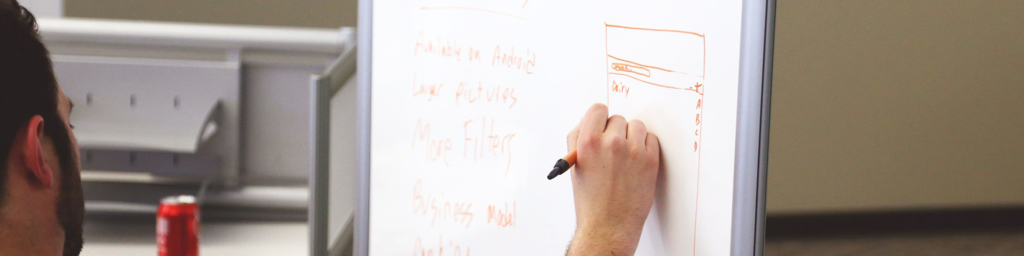 Available on Android
Larger pictures
More Filters
Business Model
Dairy
A
B
C
D